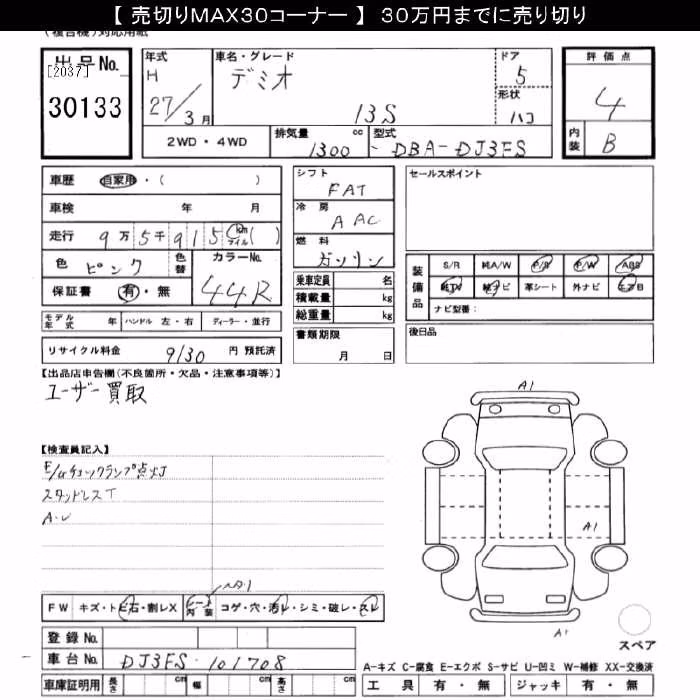 【 売切りMAX30コーナー 】 30万円までに売り切り
(複合機)対応用紙
出品No.
[2037]
30133
年式
H
27/3月
車名・グレード
デミオ
13S
ドア
5
形状
ハコ
評価点
4
内装
B
2WD・4WD
排気量
1300
cc
型式
DBA-DJ3FS
車歴
自家用・( )
車検 年 月
走行
9万5千915
km
マイル
( )
色
ピンク
色替
カラーNo.
44R
保証書
有・無
モデル年式 年
ハンドル 左・右
ディーラー・並行
リサイクル料金
9130
円 預託済
シフト
FAT
冷房
AAC
燃料
ガソリン
乗車定員 名
積載量 kg
総重量 kg
書類期限
月 日
セールスポイント
装備品
S/R
純A/W
P/S
P/W
ABS
純TV
純ナビ
革シート
外ナビ
エアB
ナビ型番:
後日品
【出品店申告欄(不良箇所・欠品・注意事項等)】
ユーザー買取
【検査員記入】
E/Gチェックランプ点灯
スタッドレスT
A・U
A1
A1
A1
FW
キズ・トビ石・割レX
シート内装
コゲ・穴・汚レ・シミ・破レ・スレ
登録No.
車台No.
DJ3FS-101708
車庫証明用
長さ cm
幅 cm
高さ cm
スペア
A-キズ C-腐食 E-エクボ S-サビ U-凹ミ W-補修 XX-交換済
工具 有・無
ジャッキ 有・無